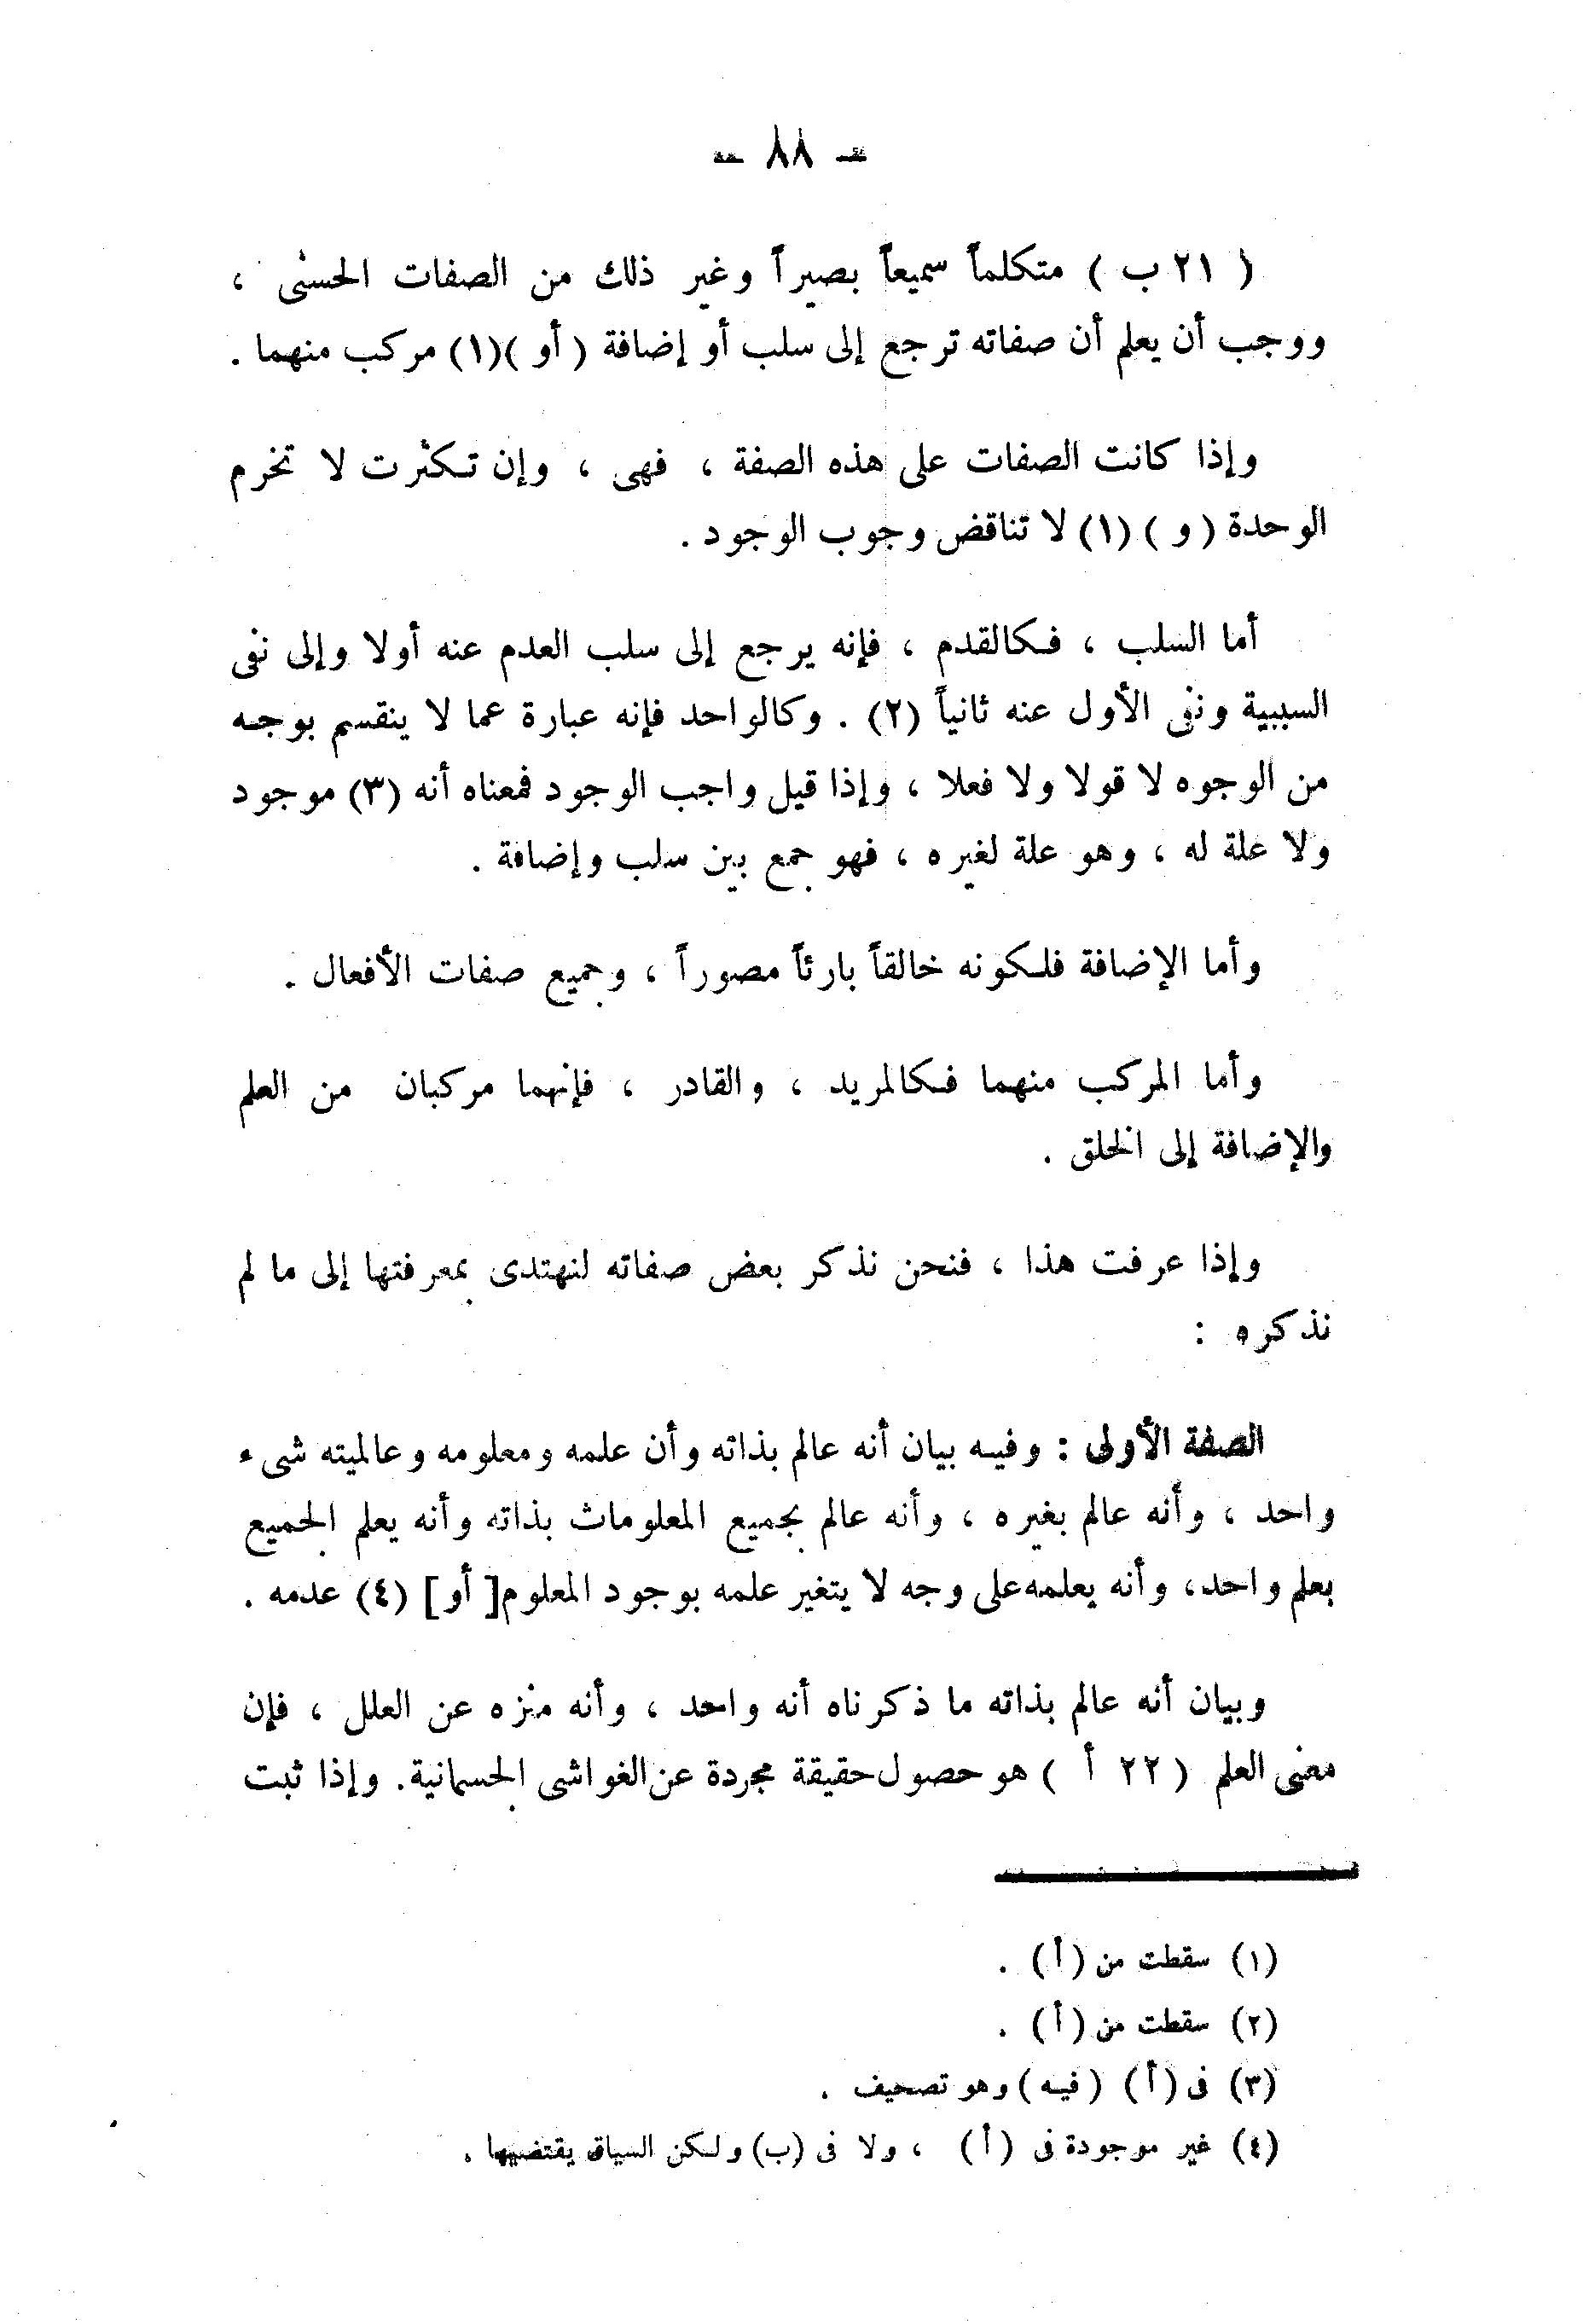 - ٨٨ -
( ٢١ ب ) متكلماً سميعاً بصيراً وغير ذلك من الصفات الحسنى ،
ووجب أن يعلم أن صفاته ترجع إلى سلب أو إضافة ( أو )(١) مركب منهما .
وإذا كانت الصفات على هذه الصفة ، فهى ، وإن تكثرت لا تخرم
الوحدة ( و ) (١) لا تناقض وجوب الوجود .
أما السلب ، فكالقدم ، فإنه يرجع إلى سلب العدم عنه أولا وإلى نفى
السببية ونفى الأول عنه ثانياً (٢) . وكالواحد فإنه عبارة عما لا ينقسم بوجه
من الوجوه لا قولا ولا فعلا ، وإذا قيل واجب الوجود فمعناه أنه (٣) موجود
ولا علة له ، وهو علة لغيره ، فهو جمع بين سلب وإضافة .
وأما الإضافة فلكونه خالقاً بارئاً مصوراً ، وجميع صفات الأفعال .
وأما المركب منهما فكالمريد ، والقادر ، فإنهما مركبان من العلم
والإضافة إلى الخلق .
وإذا عرفت هذا ، فنحن نذكر بعض صفاته لنهتدى بمعرفتها إلى ما لم
نذكره :
الصفة الأولى : وفيه بيان أنه عالم بذاته وأن علمه ومعلومه وعالميته شىء
واحد ، وأنه عالم بغيره ، وأنه عالم بجميع المعلومات بذاته وأنه يعلم الجميع
بعلم واحد، وأنه يعلمه على وجه لا يتغير علمه بوجود المعلوم [ أو ] (٤) عدمه .
وبيان أنه عالم بذاته ما ذكرناه أنه واحد ، وأنه منزه عن العلل ، فإن
معنى العلم ( ٢٢ أ ) هو حصول حقيقة مجردة عن الغواشى الجسمانية. وإذا ثبت
(١) سقطت من (أ) .
(٢) سقطت من (أ) .
(٣) فى (أ) (فيه) وهو تصحيف .
(٤) غير موجودة فى (أ) ، ولا فى (ب) ولكن السياق يقتضيها .